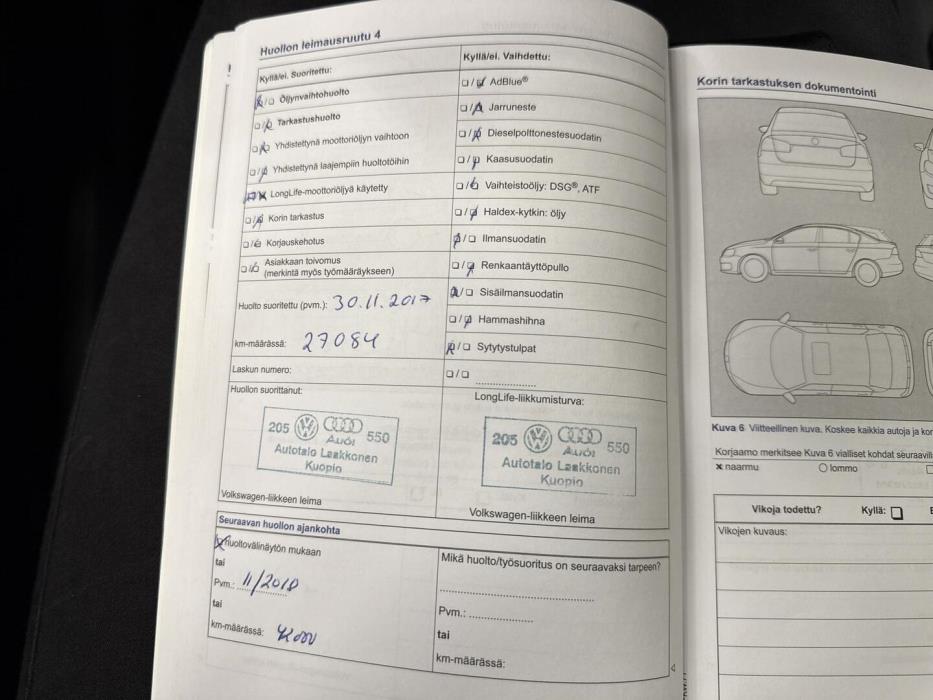 Huollon leimausruutu 4
Kyllä/ei. Suoritettu:
Öljynvaihtohuolto
Tarkastushuolto
Yhdistettynä moottoriöljyn vaihtoon
Yhdistettynä laajempiin huoltotöihin
LongLife-moottoriöljyä käytetty
Korin tarkastus
Korjauskehotus
Asiakkaan toivomus
(merkintä myös työmääräykseen)
Huolto suoritettu (pvm.): 30.11.2017
km-määrässä: 27084
Laskun numero:
Huollon suorittanut:
205 Audi 550
Autotalo Laakkonen
Kuopio
Volkswagen-liikkeen leima
Kyllä/ei. Vaihdettu:
AdBlue®
Jarruneste
Dieselpolttonestesuodatin
Kaasusuodatin
Vaihteistoöljy: DSG®, ATF
Haldex-kytkin: öljy
Ilmansuodatin
Renkaantäyttöpullo
Sisäilmansuodatin
Hammashihna
Sytytystulpat
LongLife-liikkumisturva:
205 Audi 550
Autotalo Laakkonen
Kuopio
Volkswagen-liikkeen leima
Seuraavan huollon ajankohta
Huoltovälinäytön mukaan
tai
Pvm.: 11/2018
tai
km-määrässä:
Mikä huolto/työsuoritus on seuraavaksi tarpeen?
Pvm.:
tai
km-määrässä:
4
Korin tarkastuksen dokumentointi
Kuva 6 Viitteellinen kuva. Koskee kaikkia autoja ja
Korjaamo merkitsee Kuva 6 vialliset kohdat
naarmu
lommo
Vikoja todettu? Kyllä:
Vikojen kuvaus: